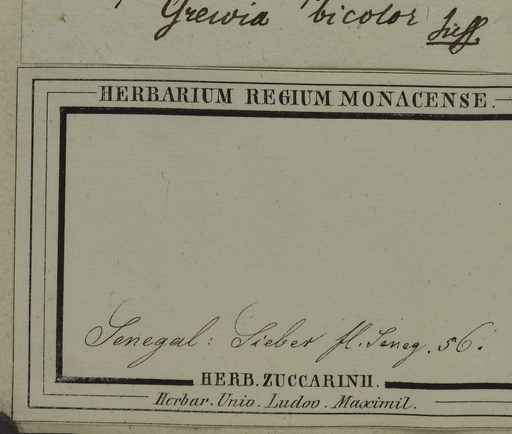 Grewia bicolor Juss.
HERBARIUM REGIUM MONACENSE.
Senegal: Sieber fl. Seneg. 56.
HERB. ZUCCARINII.
Herbar. Univ. Ludov. Maximil.